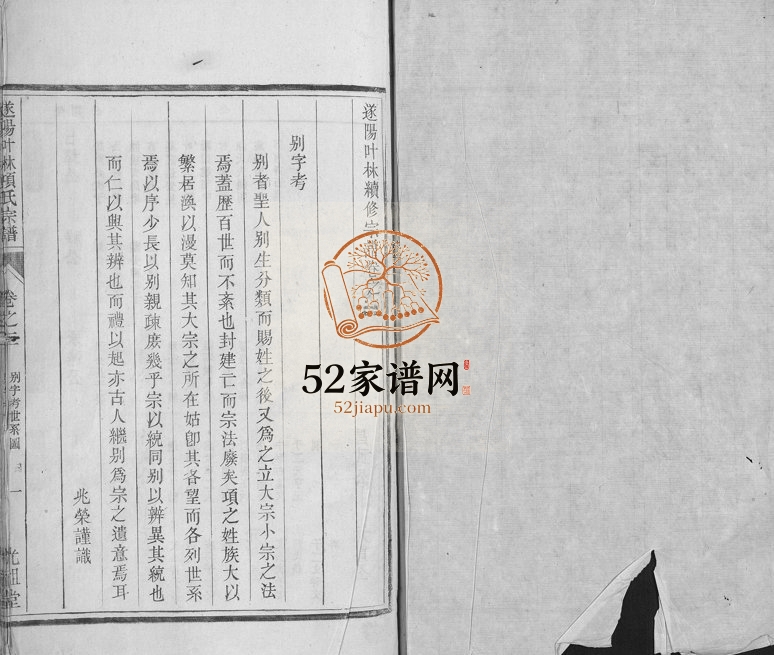 遂陽叶林續修宗
别字考
别者聖人别生分類而賜姓之後又爲之立大宗小宗之法
焉蓋歷百世而不紊也封建亡而宗法廢矣項之姓族大以
繁居渙以漫莫知其大宗之所在姑卽其各望而各列世系
焉以序少長以别親疎庶幾乎宗以統同别以辨異其統也
而仁以興其辨也而禮以起亦古人繼别爲宗之遺意焉耳
兆榮謹識
遂陽叶林項氏宗譜
卷之二
别字考世系圖
一
光祖堂
52家谱网
52jiapu.com